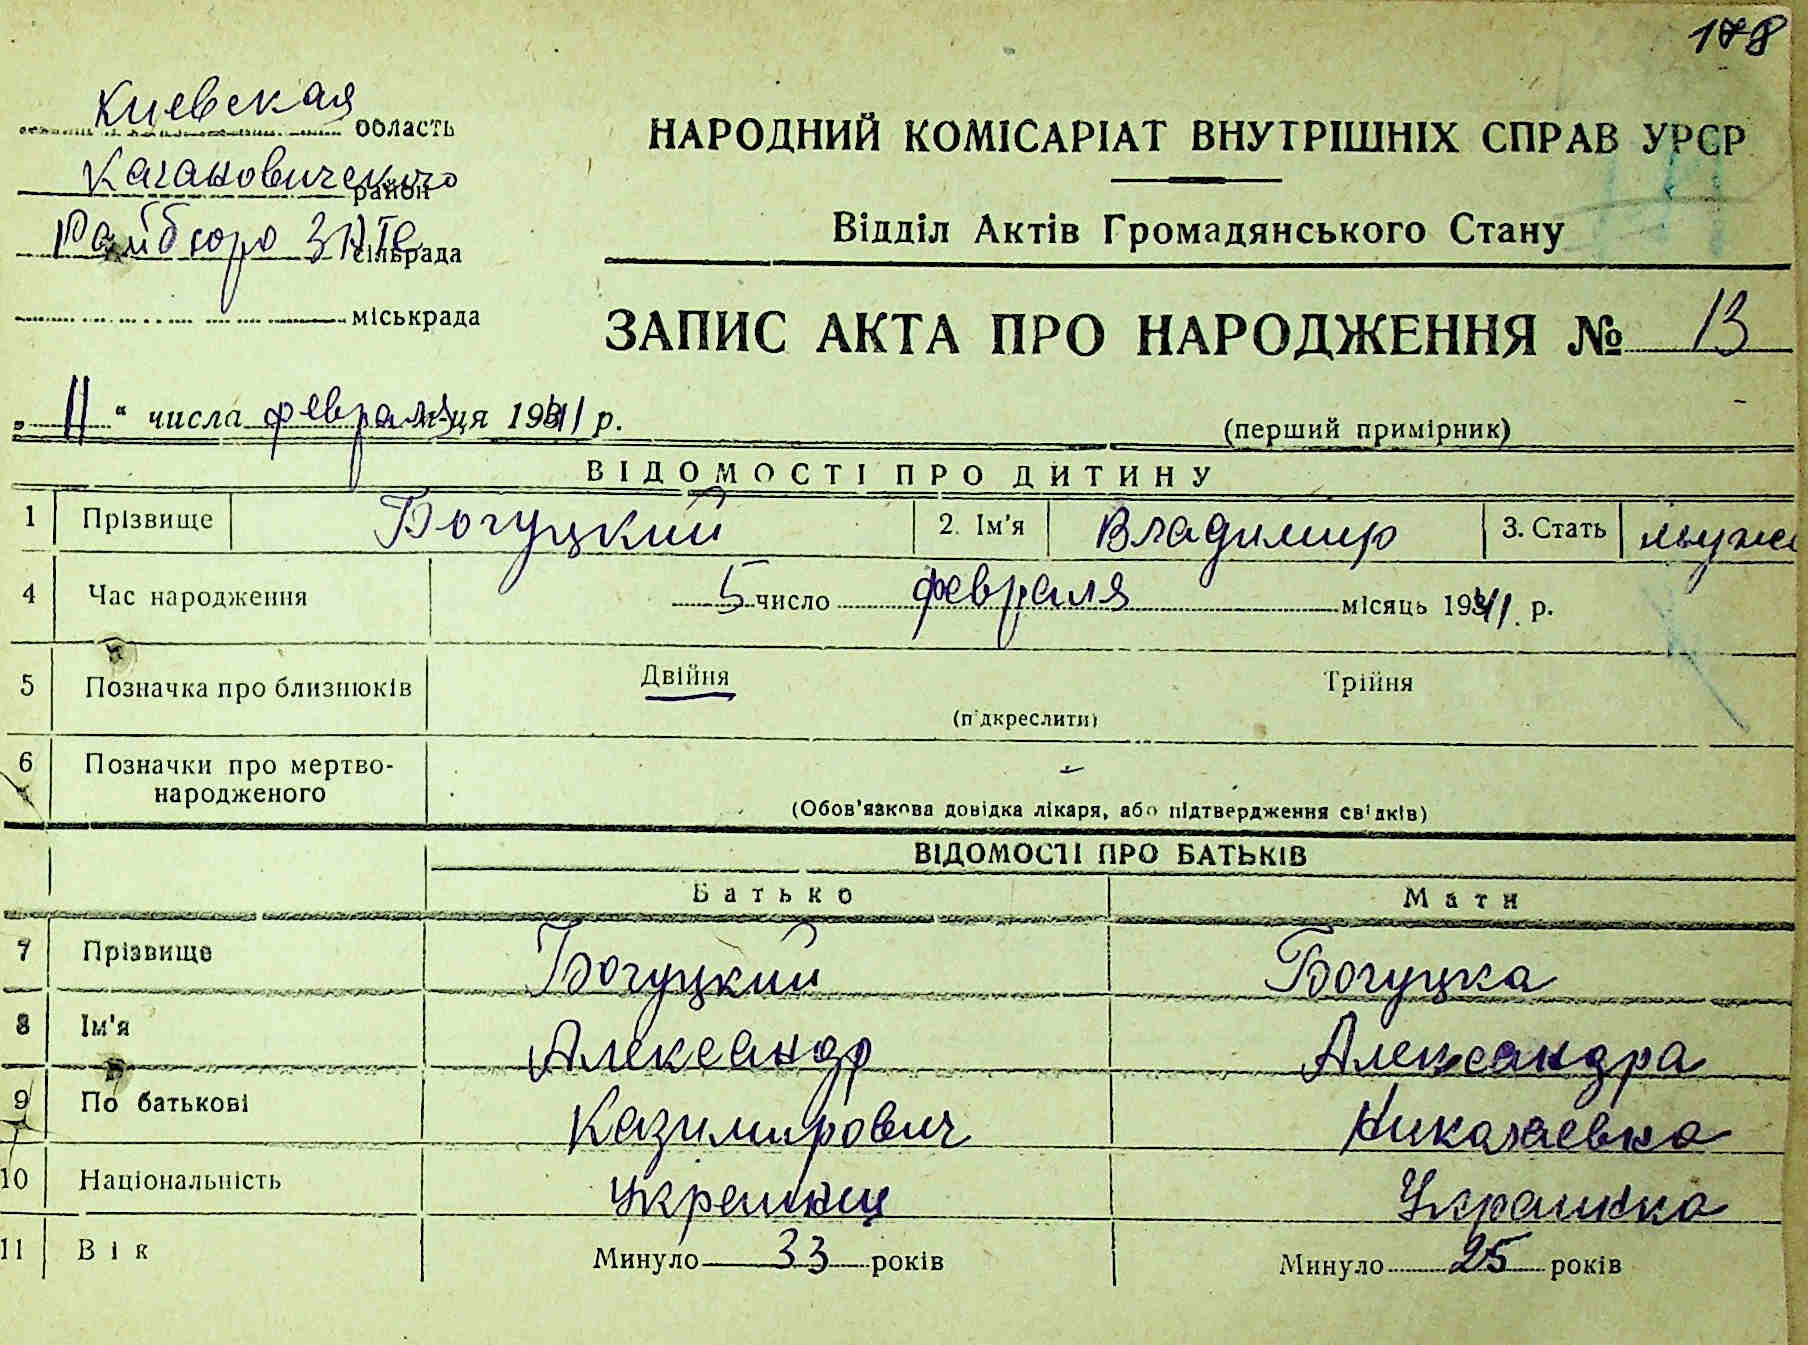 178
Киевская область
Кагановического район
Райбюро ЗАГС сільрада
міськрада
НАРОДНИЙ КОМІСАРІАТ ВНУТРІШНІХ СПРАВ УРСР
Відділ Актів Громадянського Стану
ЗАПИС АКТА ПРО НАРОДЖЕННЯ № 13
„ 11 “ числа февраля м-ця 1941 р.
(перший примірник)
ВІДОМОСТІ ПРО ДИТИНУ
1 Прізвище Богуцкий 2. Ім'я Владимир 3. Стать муже
4 Час народження 5 число февраля місяць 1941 р.
5 Позначка про близнюків Двійня Трійня
(підкреслити)
6 Позначки про мертво-
народженого -
(Обов'язкова довідка лікаря, або підтвердження свідків)
ВІДОМОСТІ ПРО БАТЬКІВ
Батько Мати
7 Прізвище Богуцкий Богуцка
8 Ім'я Александр Александра
9 По батькові Казимирович Николаевна
10 Національність Украинец Украинка
11 Вік Минуло 33 років Минуло 25 років